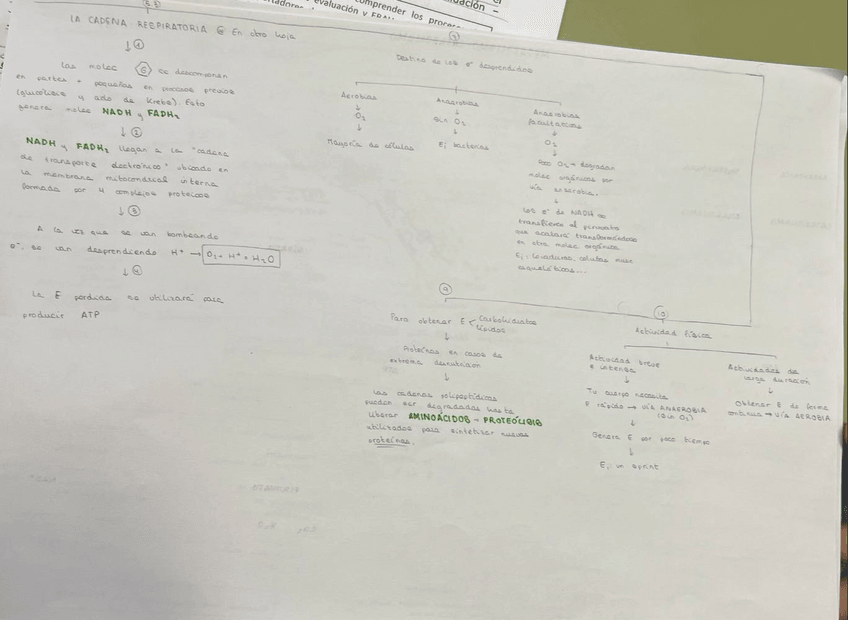 comprender los proces
evaluación y
uación –
LA CADENA RESPIRATORIA ⑥ En otra hoja
↓①
Las molec ⑥ se descomponen
en partes + pequeñas en procesos previos
(glucólisis y ciclo de Krebs). Esto
genera molec NADH y FADH₂
↓②
NADH y FADH₂ llegan a la "cadena
de transporte electrónico" ubicado en
la membrana mitocondrial interna
formada por 4 complejos proteicos
↓③
A la vez que se van bombeando
e⁻, se van desprendiendo H⁺ → O₂ + H⁺ = H₂O
↓④
La E perdida se utilizará para
producir ATP
Destino de los e⁻ desprendidos
Aerobias
↓
O₂
↓
Mayoría de células
Anaerobias
↓
Sin O₂
↓
Ej bacterias
Anaerobias
facultativas
↓
O₂
↓
poco O₂ → degradan
molec orgánicas por
vía anaerobia.
↓
Los e⁻ de NADH se
transfieren al piruvato
que acabará transformándose
en otra molec orgánica
Ej: levaduras, células musc
esqueléticas...
⑨
Para obtener E < Carbohidratos
Lípidos
↓
Proteínas en casos de
extrema desnutrición
↓
Las cadenas polipeptídicas
pueden ser degradadas hasta
liberar AMINOÁCIDOS → PROTEÓLISIS
utilizados para sintetizar nuevas
proteínas.
⑩
Actividad física
Actividad breve
e intensa
↓
Tu cuerpo necesita
E rápido → VÍA ANAEROBIA
(Sin O₂)
↓
Genera E por poco tiempo
↓
Ej: un sprint
Actividades de
larga duración
↓
Obtener E de forma
continua → VÍA AEROBIA